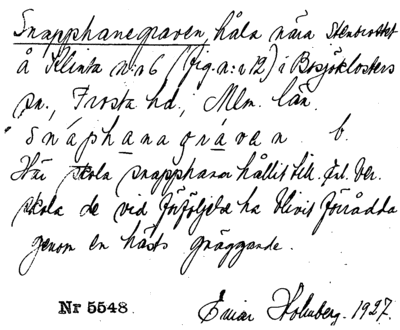 Snapphanegraven, håla nära stenbrottet
å Klinta n:r 6 (fig. n:r 12) i Bosjöklosters
sn., Frosta hd., Mlm. län.
snáphanagráven b.
Här skola snapphanar hållit till. Enl. ber.
skola de vid förföljelse ha blivit förrådda
genom en hästs gnäggande.
Nr 5548 Einar Holmberg. 1927.